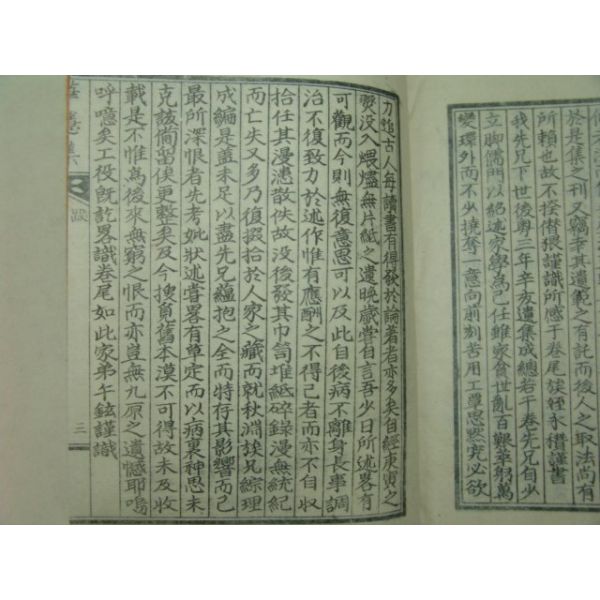 於是集之刊又竊幸其遺範之有託而後人之取法尚有
所賴也故不揆僭猥謹識所感于卷尾族姪永僭謹書
我先兄下世後粤三年辛亥遺集成總若干卷先兄自少
立脚儒門以紹述家學為己任雖家食世亂百艱萃躬萬
變環外而不少撓奪一意向前刻苦用工覃思默究必欲
力追古人每讀書有得發於論著者亦多矣自經庚寅之
燹没入煨燼無片紙之遺晩歲嘗自言吾少日所述畧有
可觀而今則無復意思可以及此自後病不離身長事調
治不復致力於述作惟有應酬之不得已者而亦不自収
拾任其漫漶散佚故没後發其巾笥堆紙碎録漫無統紀
而亡失又多乃復掇拾於人家之藏而就秋淵族兄綜理
成編是盖未足以盡先兄蘊抱之全而特存其影響而已
最所深恨者先考妣狀述嘗畧有草定而以病裏神思未
克該備留俟更整矣及今搜覓舊本漠不可得故未及收
載是不惟為後來無窮之恨而亦豈無九原之遺憾耶嗚
呼噫矣工役旣訖畧識卷尾如此家弟午鉉謹識
跋
三